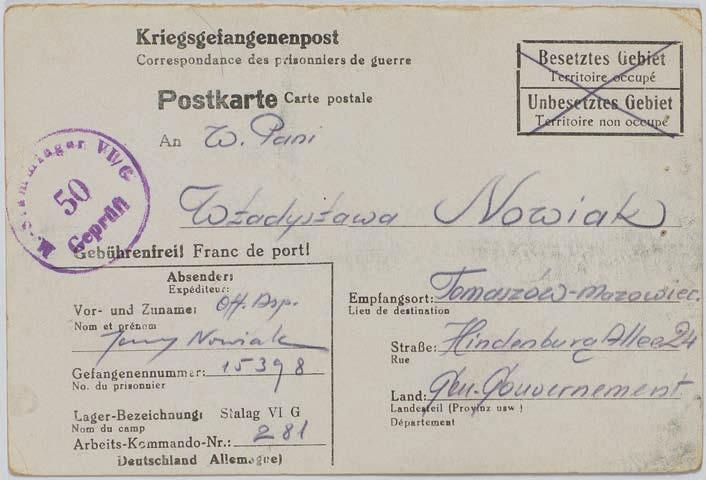 Kriegsgefangenenpost
Correspondance des prisonniers de guerre
Besetztes Gebiet
Territoire occupé
Unbesetztes Gebiet
Territoire non occupé
Postkarte Carte postale
An W. Pani
Władysława Nowiak
M.-Stammlager VI/G
50
Geprüft
Gebührenfrei! Franc de port!
Absender:
Expéditeur:
Vor- und Zuname: Off. Asp.
Nom et prénom
Jerzy Nowiak
Gefangenennummer: 15398
No. du prisonnier
Lager-Bezeichnung: Stalag VI G
Nom du camp
Arbeits-Kommando-Nr.: 281
Deutschland Allemagne)
Empfangsort: Tomaszów-Mazowiec.
Lieu de destination
Straße: Hindenburg Allee 24
Rue
Land: Gen.-Gouvernement
Landesteil (Provinz usw)
Département